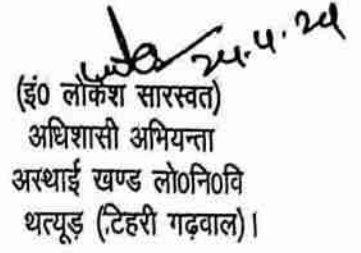 24.4.24
(इं0 लोकेश सारस्वत)
अधिशासी अभियन्ता
अस्थाई खण्ड लो0नि0वि
थत्यूड़ (टिहरी गढ़वाल)।